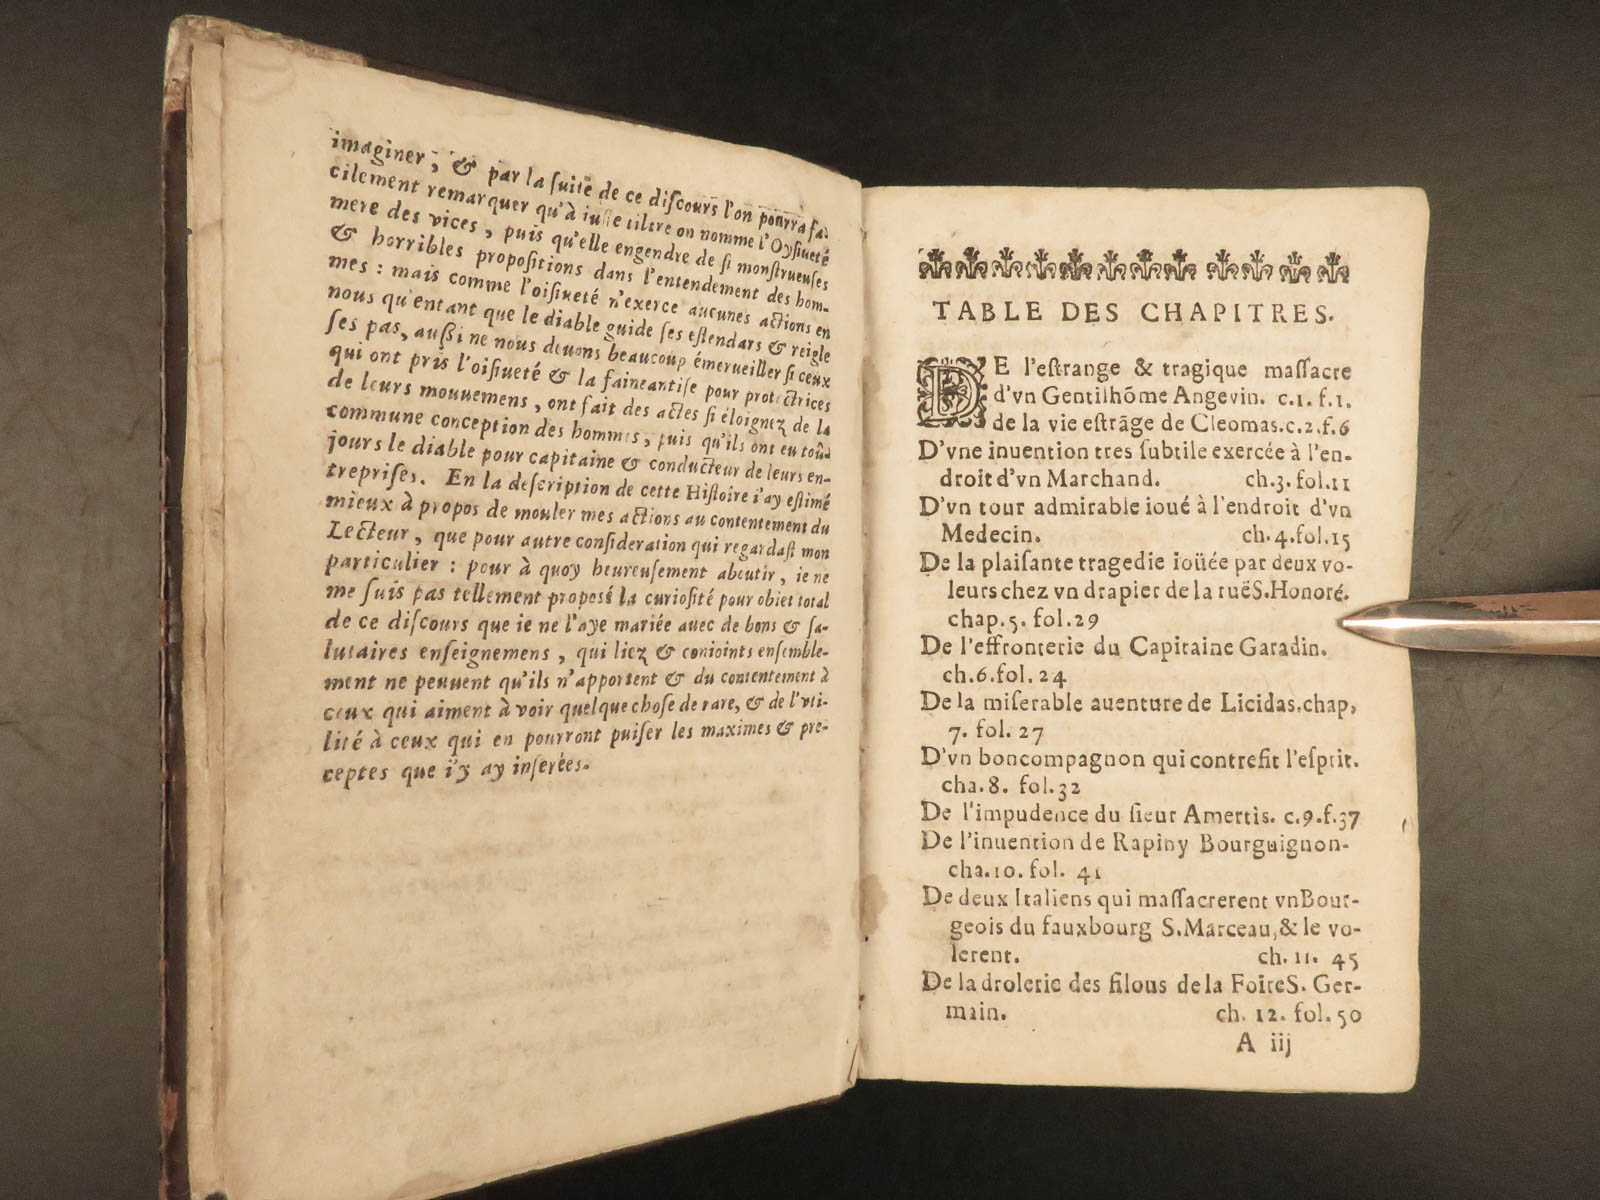 imaginer, & par la ſuite de ce diſcours l'on pourra fa-
cilement remarquer qu'à iuſte tiltre on nomme l'Oyſiueté
mere des vices, puis qu'elle engendre de ſi monſtrueuſes
& horribles propoſitions dans l'entendement des hom-
mes : mais comme l'oiſiueté n'exerce aucunes actions en
nous qu'entant que le diable guide ſes eſtendars & reigle
ſes pas, auſſi ne nous deuons beaucoup émerueiller ſi ceux
qui ont pris l'oiſiueté & la faineantiſe pour protectrices
de leurs mouuemens, ont fait des actes ſi éloignez de la
commune conception des hommes, puis qu'ils ont eu toû-
jours le diable pour capitaine & conducteur de leurs en-
trepriſes. En la deſcription de cette Hiſtoire i'ay eſtimé
mieux à propos de mouler mes actions au contentement du
Lecteur, que pour autre conſideration qui regardaſt mon
particulier : pour à quoy heureuſement aboutir, ie ne
me ſuis pas tellement proposé la curioſité pour obiet total
de ce diſcours que ie ne l'aye mariée auec de bons & ſa-
lutaires enſeignemens, qui liez & conioints enſemble-
ment ne peuuent qu'ils n'apportent & du contentement à
ceux qui aiment à voir quelque choſe de rare, & de l'vti-
lité à ceux qui en pourront puiſer les maximes & pre-
ceptes que i'y ay inſerées.
TABLE DES CHAPITRES.
DE l'eſtrange & tragique maſſacre
d'vn Gentilhõme Angevin. c.1. f.1.
de la vie eſtrãge de Cleomas.c.2.f.6
D'vne inuention tres ſubtile exercée à l'en-
droit d'vn Marchand. ch.3. fol.11
D'vn tour admirable ioué à l'endroit d'vn
Medecin. ch.4.fol.15
De la plaiſante tragedie ioüée par deux vo-
leurs chez vn drapier de la ruë S.Honoré.
chap.5. fol.29
De l'effronterie du Capitaine Garadin.
ch.6.fol. 24
De la miſerable auenture de Licidas.chap,
7. fol. 27
D'vn boncompagnon qui contrefit l'eſprit.
cha.8. fol.32
De l'impudence du ſieur Amertis. c.9.f.37
De l'inuention de Rapiny Bourguignon-
cha.10. fol. 41
De deux Italiens qui maſſacrerent vn Bour-
geois du fauxbourg S.Marceau,& le vo-
lerent. ch. 11. 45
De la drolerie des filous de la Foire S. Ger-
main. ch. 12. fol.50
A iij